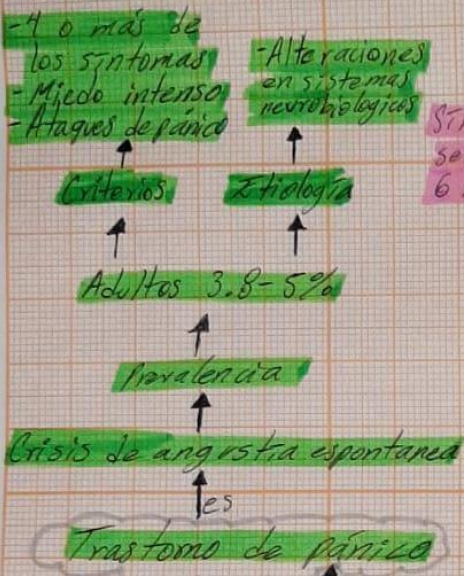 -4 o más de
los síntomas
- Miedo intenso
- Ataques de pánico
-Alteraciones
en sistemas
neurobiologicos
Criterios
Etiología
Adultos 3.8-5%
Prevalencia
Crisis de angustia espontanea
es
Trastorno de pánico
se
6